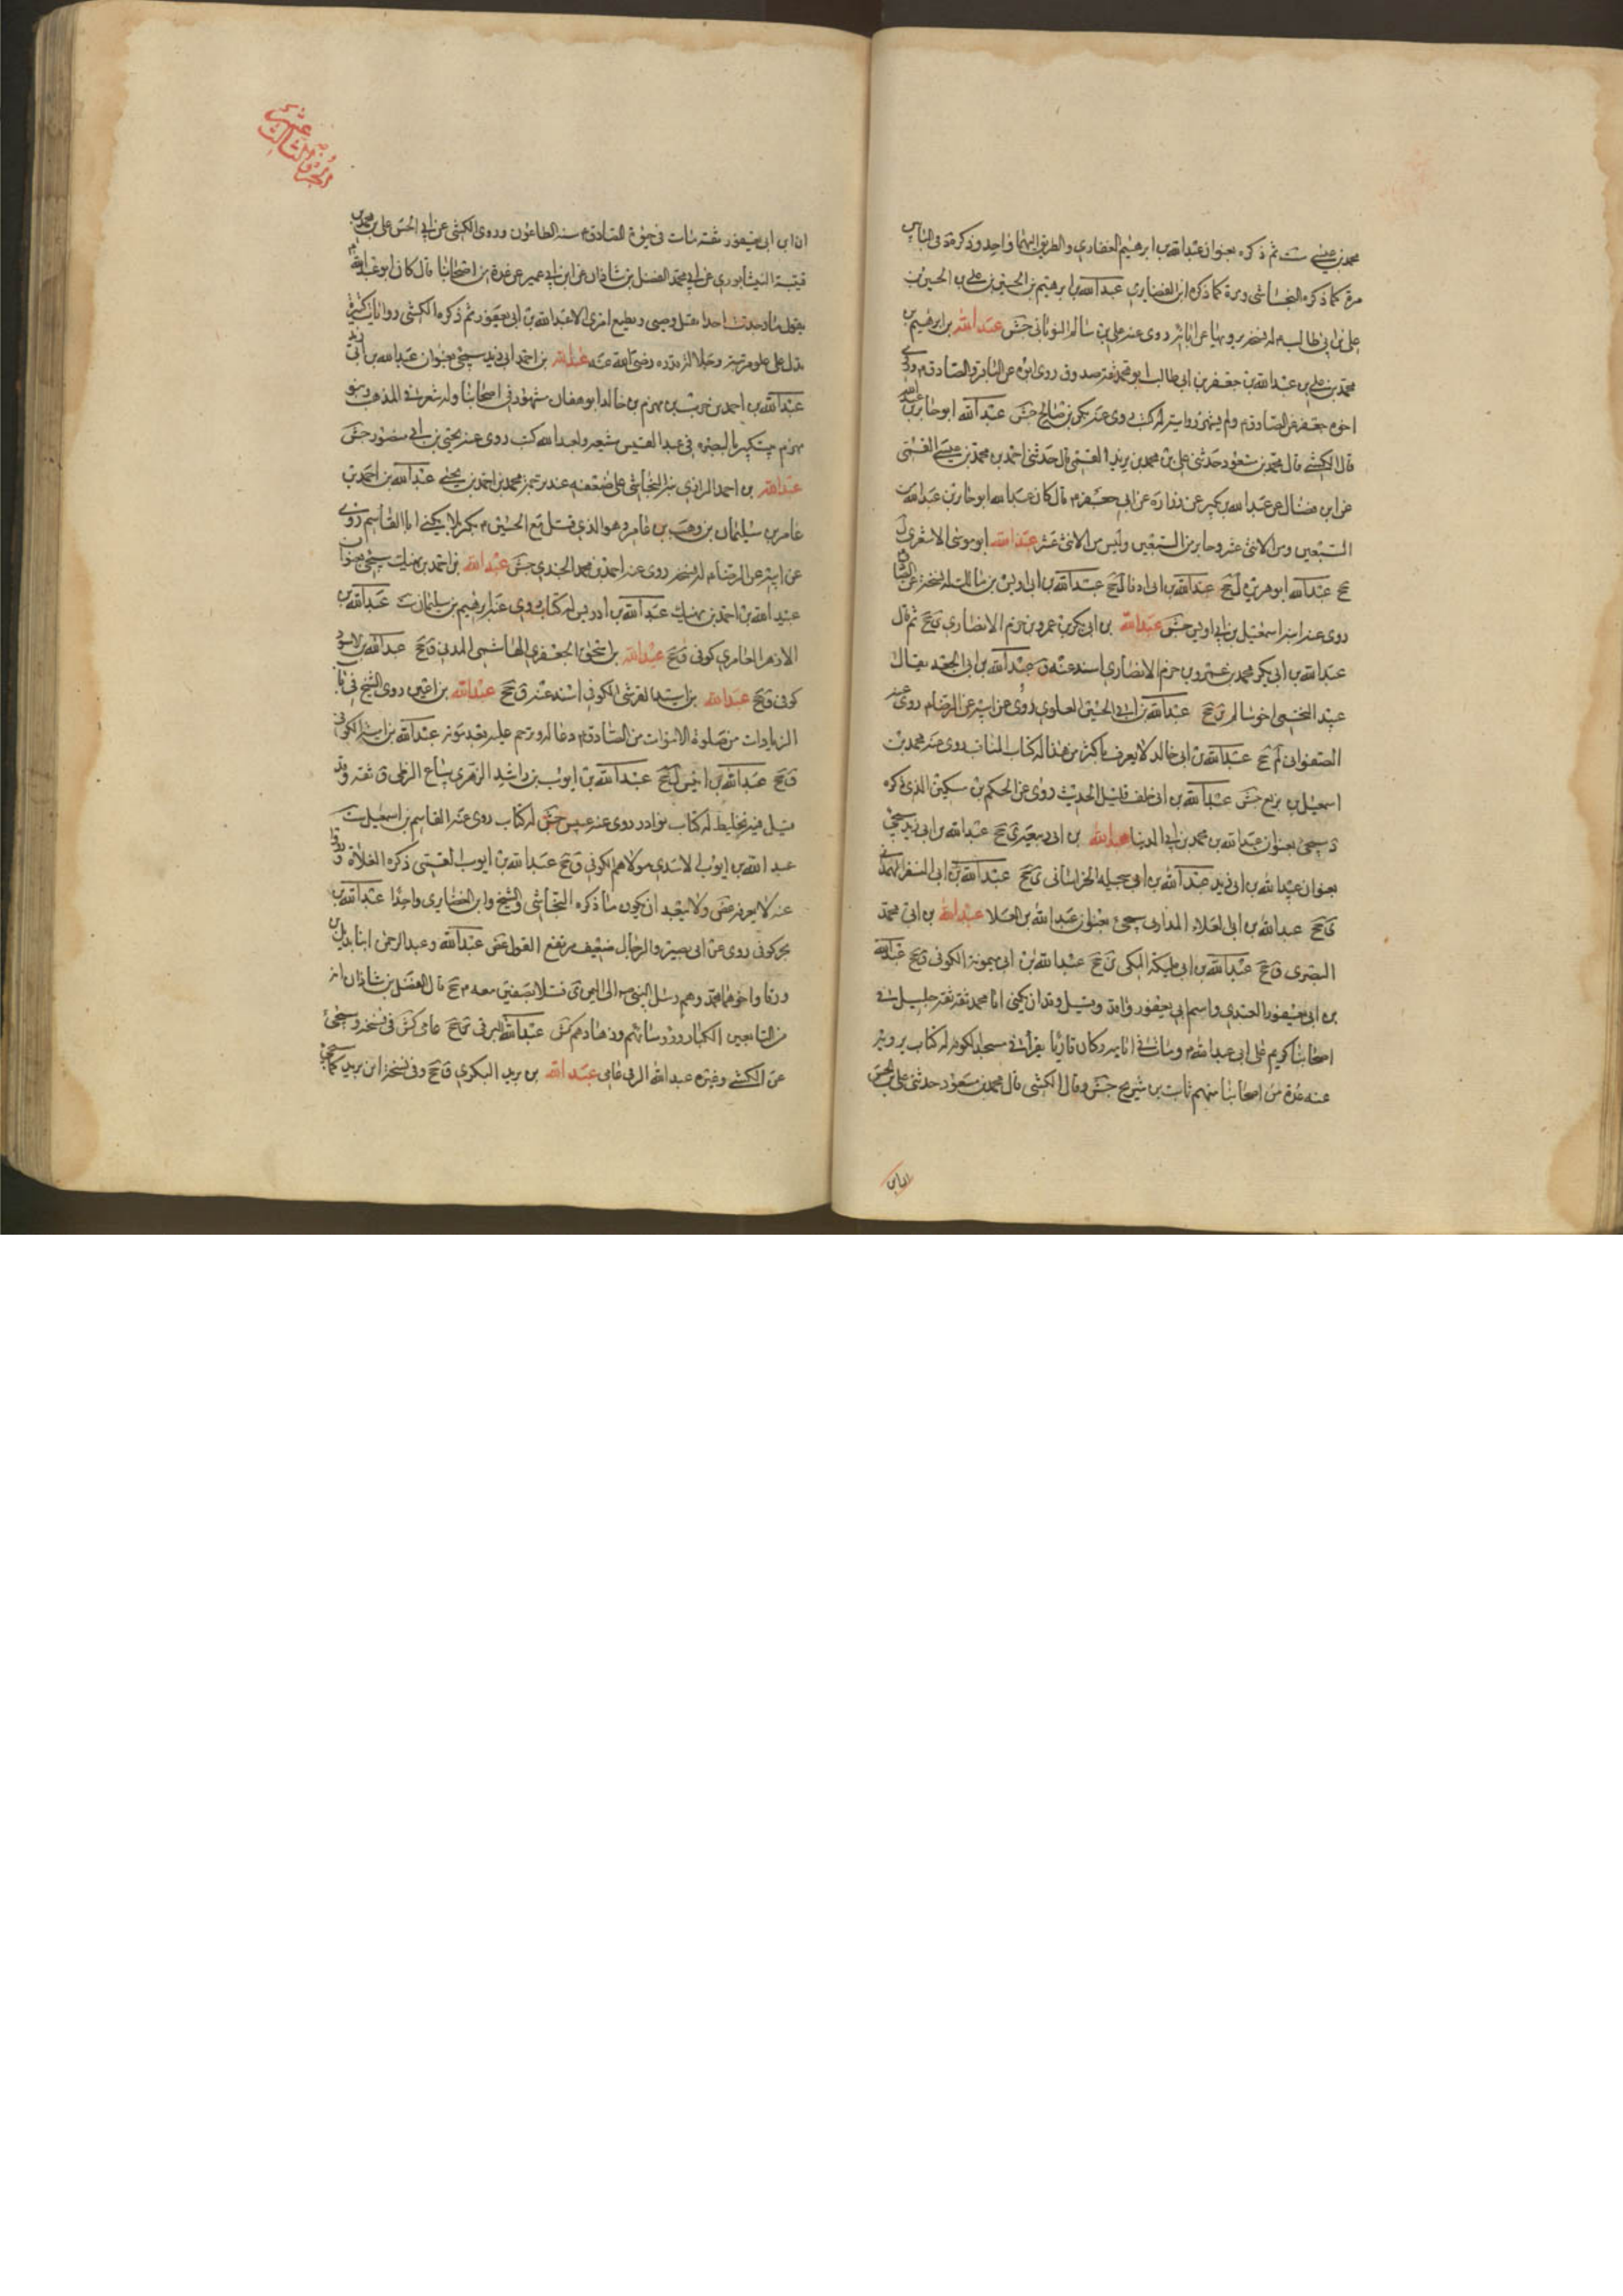 محمد بن عيسى ست ثم ذكره بعنوان عبدالله بن ابرهيم الغفاري والطريق اليهما واحد وذكره في الباس
مرة كما ذكره النجاشي ومرة كما ذكره ابن الغضايري عبدالله بن ابرهيم بن الحسين بن علي بن الحسين بن
علي بن ابي طالب م له نسخة يرويها عن ابائه روى عنه علي بن سالم التوباني جش عبدالله بن ابرهيم بن
محمد بن علي بن عبدالله بن جعفر بن ابي طالب ابو محمد ثقة صدوق روى ابوه عن الباقر والصادق م وروى
اخوه جعفر عن الصادق م ولم يشتهر روايته له كتب روى عنه بكر بن صالح جش عبدالله ابو جابر بن عبدالله
قال الكشي قال محمد بن مسعود حدثني علي بن محمد بن يزيد القمي قال حدثني احمد بن محمد بن عيسى القمي
عن ابن فضال عن عبدالله بن بكير عن زرارة عن ابي جعفر م قال كان عبدالله ابو جابر بن عبدالله من
السبعين ومن الاثنى عشر وجابر من السبعين وليس من الاثنى عشر عبدالله ابو موسى الاشعري ل
جخ عبدالله ابو هريرة ل جخ عبدالله بن ابي اوفا ل جخ عبدالله بن ابي اويس بن مالك له نسخة عن الصادق
روى عنه ابنه اسمعيل بن ابي اويس جش عبدالله بن ابي بكر بن عمرو بن حزم الانصاري ين جخ ثم قال
عبدالله بن ابي بكر محمد بن عمرو بن حزم الانصاري اسند عنه ق جخ عبدالله بن ابي الجعد يقال
عبيد النخعي اخو سالم ين جخ عبدالله بن ابي الحسين العلوي روى عن ابيه عن الرضا م روى عنه
الصفواني لم جخ عبدالله بن ابي خالد لا يعرف باكثر من هذا له كتاب المناقب روى عنه محمد بن
اسمعيل بن بزيع جش عبدالله بن ابي خلف قليل الحديث روى عن الحكم بن مسكين الذي ذكره
وسيجئ بعنوان عبدالله بن محمد بن ابي الدنيا عبدالله بن ابي زيد سيجئ
بعنوان عبيدالله بن ابي زيد عبدالله بن ابي الخراساني جخ عبدالله بن ابي السفر الهمداني
ق جخ عبدالله بن ابي العلاء المذاري سيجئ بعنوان عبدالله بن العلا عبدالله بن ابي محمد
البصري ق جخ عبدالله بن ابي مليكة المكي ين جخ عبدالله بن ابي ميمونة الكوفي ق جخ عبدالله
بن ابي يعفور العبدي واسم ابي يعفور واقد وقيل وقدان يكنى ابا محمد ثقة ثقة جليل في
اصحابنا كريم على ابي عبدالله م ومات في ايامه وكان قاريا يقرأ في مسجد الكوفة له كتاب يرويه
عنه عدة من اصحابنا منهم ثابت بن شريح جش وقال الكشي قال محمد بن مسعود حدثني علي بن الحسن
ان ابن
الجزو الثالث عشر
ان ابن ابي يعفور ثقة مات في حيوة الصادق م سنة الطاعون وروى الكشي عن ابي الحسن علي بن محمد بن
قتيبة النيشابوري عن ابي محمد الفضل بن شاذان عن ابن ابي عمير عن عدة من اصحابنا قال كان ابو عبدالله م
يقول ما وجدت احدا يقبل وصيتي ويطيع امري الا عبدالله بن ابي يعفور ثم ذكره الكشي روايات كثيرة
تدل على علو مرتبته وجلالة قدره رضي الله عنه عبدالله بن احمد ابي زيد سيجئ بعنوان عبيدالله بن ابي زيد
عبدالله بن احمد بن حرب بن مهزم بن خالد ابو هفان مشهور في اصحابنا وله شعر في المذهب وبنو
مهزم بيت كبير بالبصرة في عبد القيس شيعة ولعبدالله كتب روى عنه يحيى بن ابي منصور جش
عبدالله بن احمد الرازي نبه النجاشي على ضعفه عند ترجمة محمد بن احمد بن يحيى عبدالله بن احمد بن
عامر بن سليمان بن وهب بن عامر وهو الذي قتل مع الحسين م بكربلا يكنى ابا القاسم روى
عن ابيه عن الرضا م له نسخة روى عنه احمد بن محمد الجندي جش عبدالله بن احمد بن نهيك سيجئ بعنوان
عبيد الله بن احمد بن نهيك عبدالله بن ادريس له كتاب روى عنه ابرهيم بن سليمان ست عبدالله بن
الازهر العامري كوفي ق جخ عبدالله بن اسحق الجعفري الهاشمي المدني ق جخ عبدالله بن الاسود
كوفي ق جخ عبدالله بن اسيد القرشي الكوفي اسند عنه ق جخ عبدالله بن اعين روى الشيخ في باب
الزيادات من صلوة الاموات من الصادق م دعا له وترحم عليه بعد موته عبدالله بن امية الكوفي
ق جخ عبدالله بن انيس ل جخ عبدالله بن ايوب بن راشد الزهري بياع الزطي ق ثقة وقد
قيل فيه تخليط له كتاب نوادر روى عنه عبيس جش له كتاب روى عنه القاسم بن اسمعيل ست
عبدالله بن ايوب الاسدي مولاهم الكوفي ق جخ عبدالله بن ايوب القمي ذكره الغلاة وروى
عنه لا يعرف غض ولا يبعد ان يكون ما ذكره النجاشي والشيخ وابن الغضايري واحدا عبدالله بن
بحر كوفي روى عن ابي بصير والرجال ضعيف مرتفع القول غض عبدالله وعبدالرحمن ابنا بديل بن
ورقا واخوهما محمد وهم رسل النبي ص الى اليمن ي قتلا بصفين معه م جخ قال الفضل بن شاذان انه
من التابعين الكبار ورؤسائهم وزهادهم كش عبدالله البرقي جخ عامي كش في نسخة وسيجئ
عن الكشي وغيره عبدالله الرقي عامي عبدالله بن بريد البكري ق جخ وفي نسخة ابن يزيد كما سيجئ